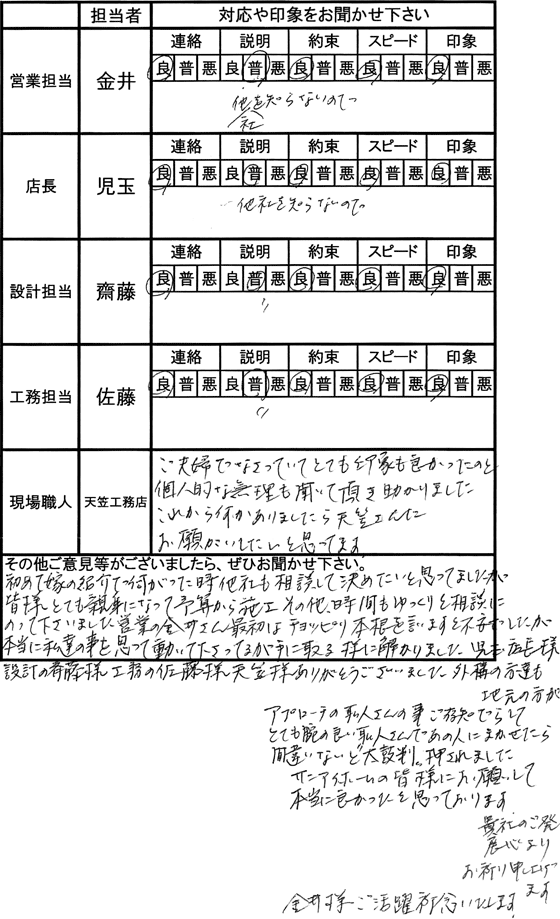 担当者 対応や印象をお聞かせ下さい
営業担当 金井
連絡 説明 約束 スピード 印象
良 普 悪 良 普 悪 良 普 悪 良 普 悪 良 普 悪
他を知らないので
社
店長 児玉
連絡 説明 約束 スピード 印象
良 普 悪 良 普 悪 良 普 悪 良 普 悪 良 普 悪
他社を知らないので
設計担当 齋藤
連絡 説明 約束 スピード 印象
良 普 悪 良 普 悪 良 普 悪 良 普 悪 良 普 悪
〃
工務担当 佐藤
連絡 説明 約束 スピード 印象
良 普 悪 良 普 悪 良 普 悪 良 普 悪 良 普 悪
〃
現場職人 天笠工務店
ご夫婦でなさっていてとても印象も良かったのと
個人的な無理も聞いて頂き助かりました
これから何かありましたら天笠さんに
お願いしたいと思ってます
その他ご意見等がございましたら、ぜひお聞かせ下さい。
初めて嫁の紹介で伺がった時他社も相談して決めたいと思ってましたが
皆様とても親身になって予算から施工その他時間もゆっくりと相談に
のって下さいました 営業の金井さん最初はチョッピリ本根を言いますと不安でしたが
本当に私達の事を思って動いて下さってるが手に取る様に解かりました 児玉店長様
設計の斉藤様 工務の佐藤様 天笠様ありがとうございました 外構の方達も
地元の方が
アプローチの職人さんの事ご存知でらして
とても腕の良い職人さんであの人にまかせたら
間違いないと太鼓判。押されました
サンアイホームの皆様にお願いして
本当に良かったと思っております
貴社のご発
展心より
お祈り申し上げ
ます
金井様ご活躍祈念いたします